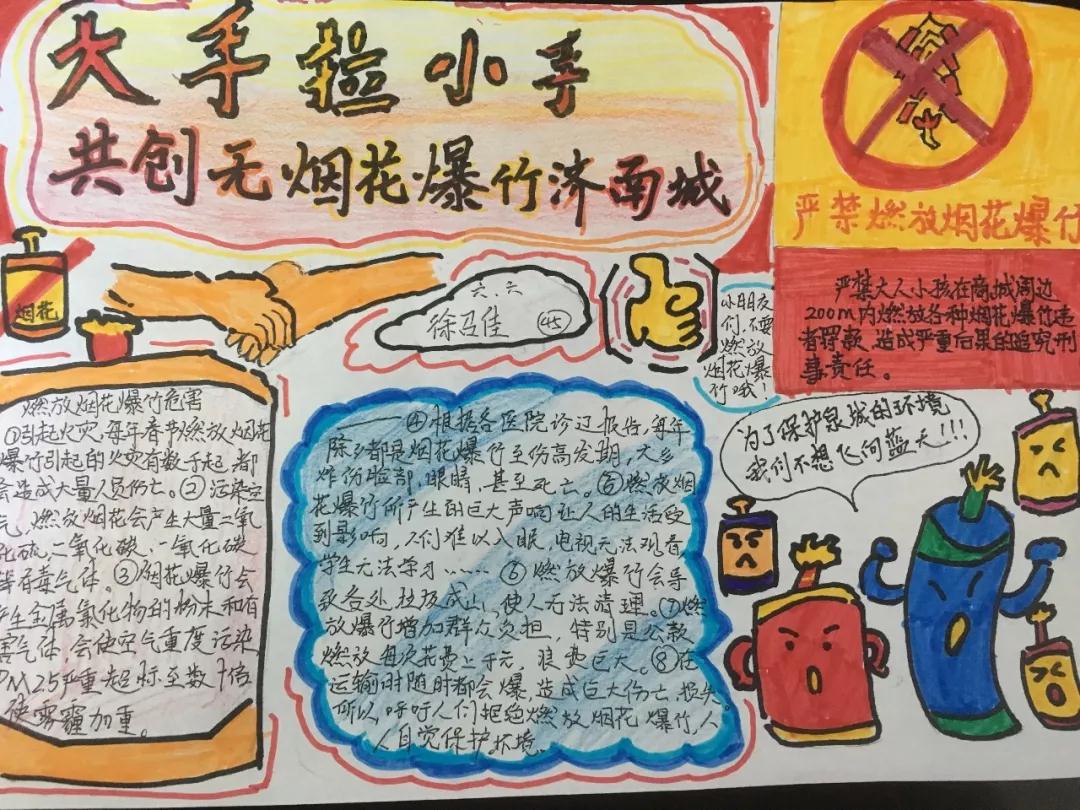 大手拉小手
共创无烟花爆竹济南城
严禁燃放烟花爆竹
严禁大人小孩在商城周边
200m内燃放各种烟花爆竹违
者罚款,造成严重后果的追究刑
事责任。
烟花
六.六
徐 佳 45
小朋友
们,不要
燃放
烟花爆
竹哦!
燃放烟花爆竹危害
①引起火灾,每年春节燃放烟花
爆竹引起的火灾有数千起,都
会造成大量人员伤亡。②污染空
气,燃放烟花会产生大量二氧
化硫、二氧化碳、一氧化碳
等有毒气体。③烟花爆竹会
产生金属氧化物的粉末和有
害气体,会使空气重度污染,
PM2.5严重超标至数十倍
使雾霾加重。
④根据各医院诊过报告,每年
除夕都是烟花爆竹至伤高发期,大多
炸伤脸部、眼睛,甚至死亡。⑤燃放烟
花爆竹所产生的巨大声响让人的生活受
到影响,人们难以入眠,电视无法观看
学生无法学习……⑥燃放爆竹会导
致各处垃圾成山,使人无法清理。⑦燃
放爆竹增加群众负担,特别是公款
燃放每次花费上千元,浪费巨大。⑧在
运输时随时都会爆,造成巨大伤亡、损失。
所以,呼吁人们拒绝燃放烟花爆竹,人
人自觉保护环境。
为了保护泉城的环境
我们不想飞向蓝天!!!